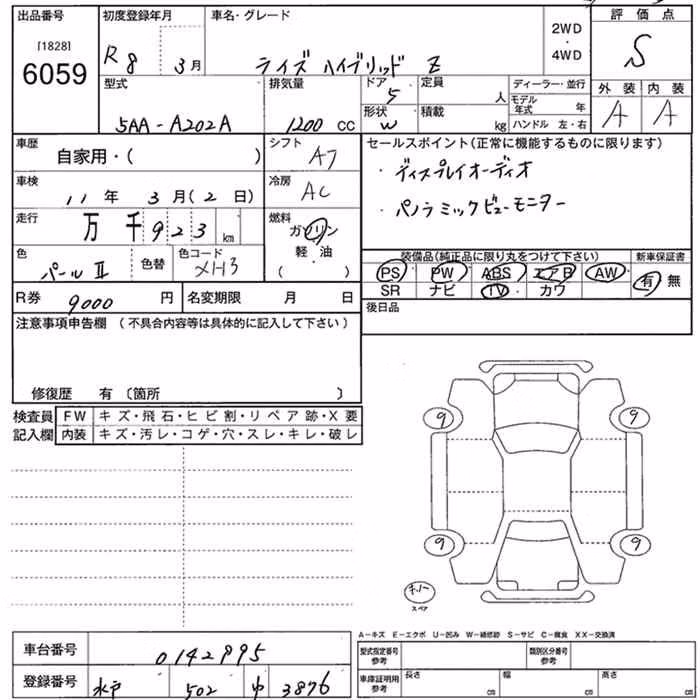 出品番号
[1828]
6059
初度登録年月
R 8 3月
車名・グレード
ライズ ハイブリッド Z
2WD
・
4WD
評価点
S
外装 内装
A A
型式
5AA-A202A
排気量
1200 cc
ドア
5
定員
人
形状
W
積載
kg
ディーラー・並行
モデル年式 年
ハンドル 左・右
車歴
自家用・( )
シフト
A7
セールスポイント(正常に機能するものに限ります)
・ディスプレイオーディオ
・パノラミックビューモニター
車検
11年 3月(2日)
冷房
AC
走行
万 千 923 km
燃料
ガソリン
軽・油
( )
色
パールⅡ
色替
色コード
XH3
装備品(純正品に限り丸をつけて下さい)
PS PW ABS エアB AW
SR ナビ TV カワ
新車保証書
有 無
R券 9000 円
名変期限 月 日
後日品
注意事項申告欄 (不具合内容等は具体的に記入して下さい)
修復歴 有〔箇所 〕
検査員
記入欄
FW キズ・飛石・ヒビ割・リペア跡・X要
内装 キズ・汚レ・コゲ・穴・スレ・キレ・破レ
9 9
9 9
キノー
スペア
A-キズ E-エクボ U-凹み W-補修跡 S-サビ C-腐食 XX-交換済
車台番号 0142995
登録番号 水戸 502 ゆ 3876
型式指定番号
参考
類別区分番号
参考
車庫証明用
参考
長さ cm
幅 cm
高さ cm